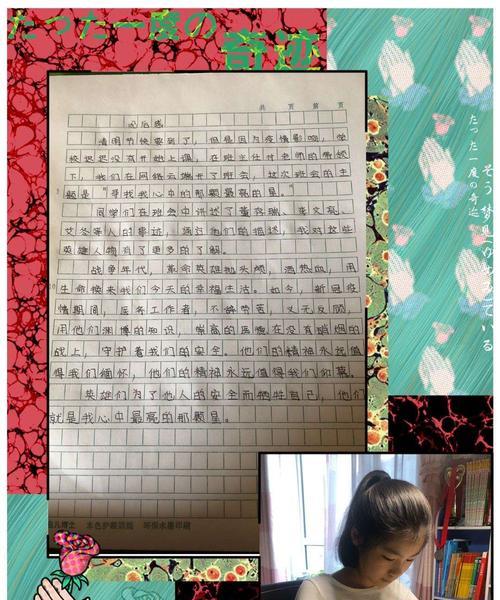 たった一度の
奇迹
たった一度の奇迹
そう 夢見
ている
共 页 第 页
观后感
清明节快要到了，但是因为疫情影响，学
校迟迟没有开始上课，在班主任付老师的带领
下，我们在网络云端开了班会，这次班会的主
题是“寻找我心中的那颗最亮的星。”
同学们在班会中讲述了董存瑞、李文亮、
艾芬等人的事迹，通过他们的描述，我对这些
英雄人物有了更多的了解。
战争年代，革命英雄抛头颅，洒热血，用
生命换来我们今天的幸福生活。如今，新冠疫
情期间，医务工作者，不辞劳苦，义无反顾，
用他们渊博的知识，崇高的医德在没有硝烟的
战上，守护着我们的安全。他们的精神永远值
得我们缅怀，他们的精神永远值得我们
英雄们为了他人的安全而牺牲自己，他们
就是我心中最亮的那颗星。
本色护眼纸版 环保水墨印刷